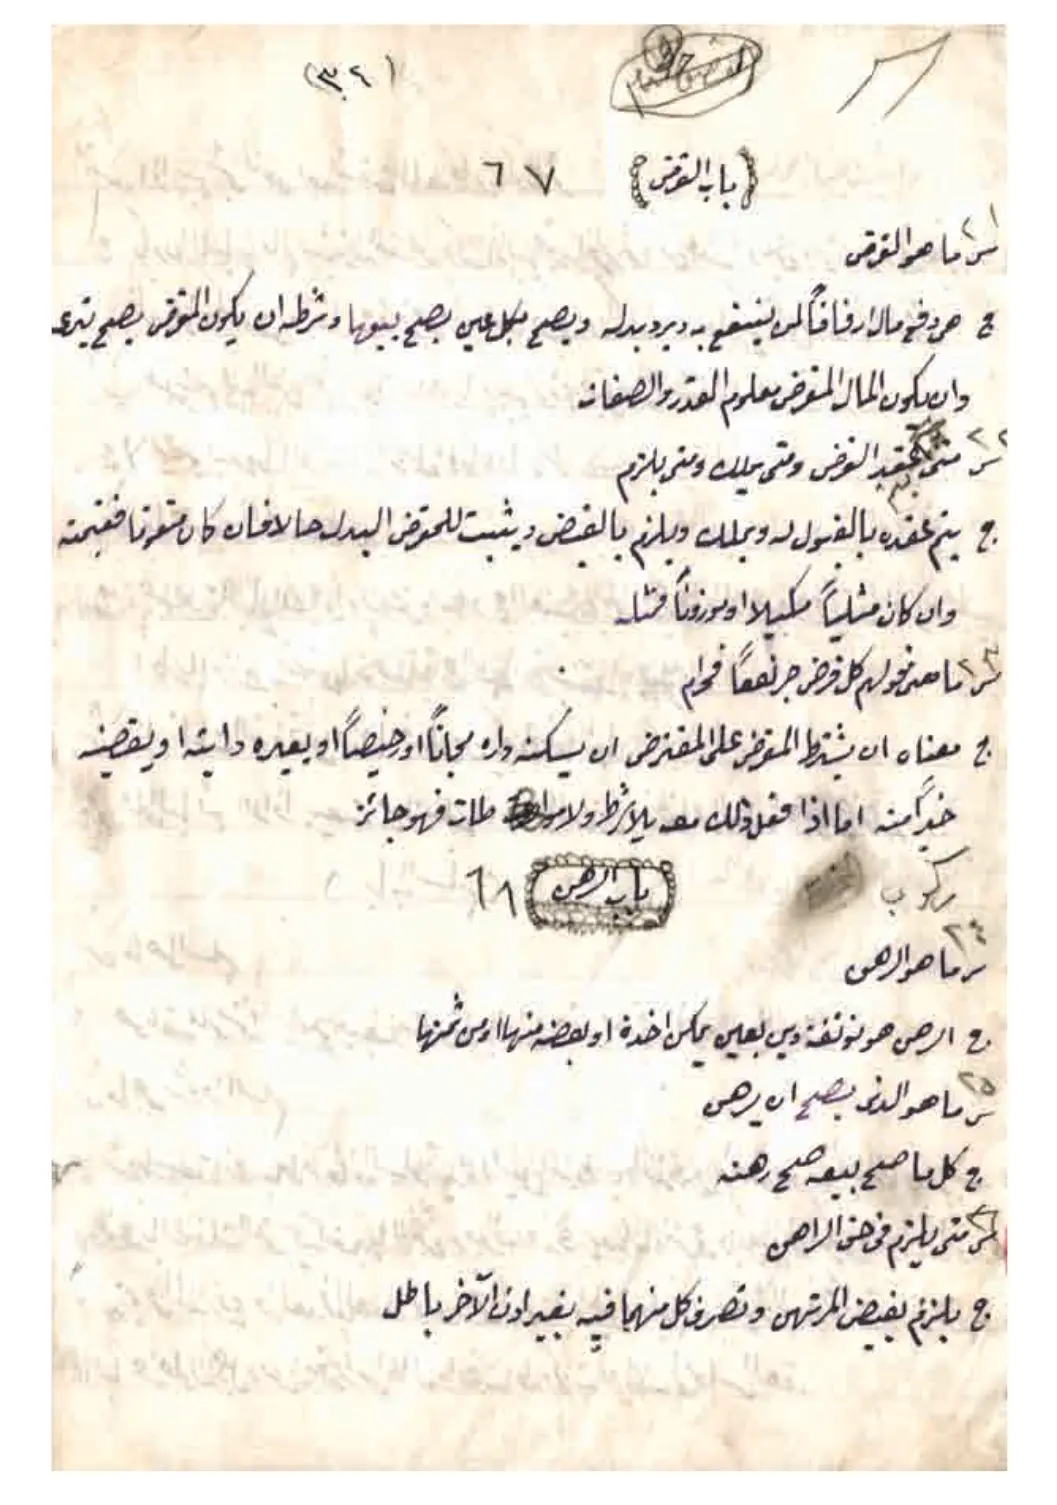 (٣٠٤)
(باب القرض) ٦٧
س٢١ ما هو القرض
ج هو دفع مال ارفاقاً لمن ينتفع به ويرد بدله ويصح بكل عين يصح بيعها وشرطه ان يكون المقرض يصح تبرعه
وان يكون المال المقرض معلوم القدر والصفات
س٢٢ متى يتم عقد القرض ومتى يملك ومتى يلزم
ج يتم عقده بالقبول له ويملك ويلزم بالقبض ويثبت للمقرض البدل حالا فان كان متقوما فقيمته
وان كان مثلياً مكيلا او موزوناً فمثله
س٢٣ ما معنى قولهم كل قرض جر نفعاً فحرام
ج معناه ان يشترط المقرض على المقترض ان يسكنه داره مجاناً او رخيصاً او يعيره دابته او يقضيه
خيراً منه اما اذا فعل ذلك معه بلا شرط ولا فهو جائز
ركوب
باب الرهن ٦٨
س٢٤ ما هو الرهن
ج الرهن هو توثقة دين بعين يمكن اخذه او بعضه منها او من ثمنها
س٢٥ ما هو الذى يصح ان يرهن
ج كل ما صح بيعه صح رهنه
س٢٦ متى يلزم فى حق الراهن
ج يلزم بقبض المرتهن وتصرف كل منهما فيه بغير اذن الآخر باطل